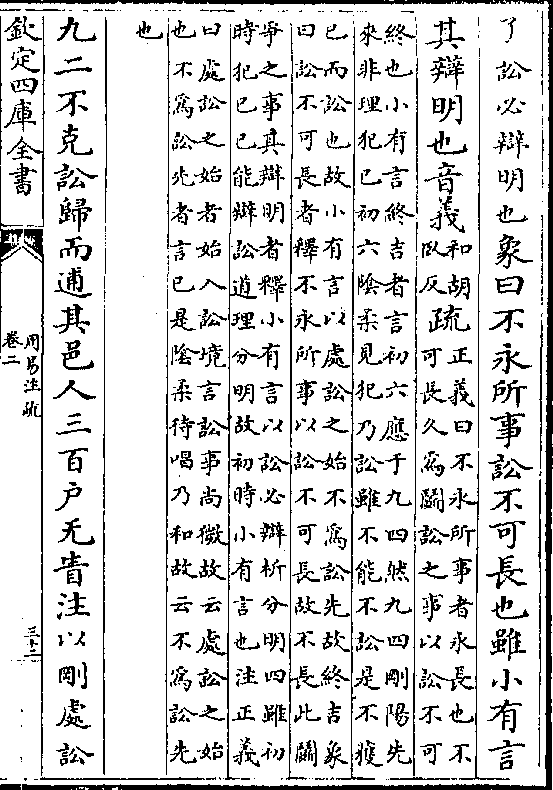 了訟必辯明也象曰不永所事訟不可長也雖小有言
其辯明也音義和胡臥反疏正義曰不永所事者永長也不可長久為鬭訟之事以訟不可
終也小有言終吉者言初六應于九四然九四剛陽先
來非理犯已初六陰柔見犯乃訟雖不能不訟是不獲
已而訟也故小有言以處訟之始不為訟先故終吉象
曰訟不可長者釋不永所事以訟不可長故不長此鬭
爭之事其辯明者釋小有言以訟必辯析分明四雖初
時犯已已能辯訟道理分明故初時小有言也注正義
曰處訟之始者始入訟境言訟事尚微故云處訟之始
也不為訟先者言已是陰柔待唱乃和故云不為訟先
也
九二不克訟歸而逋其邑人三百户无眚注以剛處訟
欽定四庫全書
周易注疏
卷二
三十二